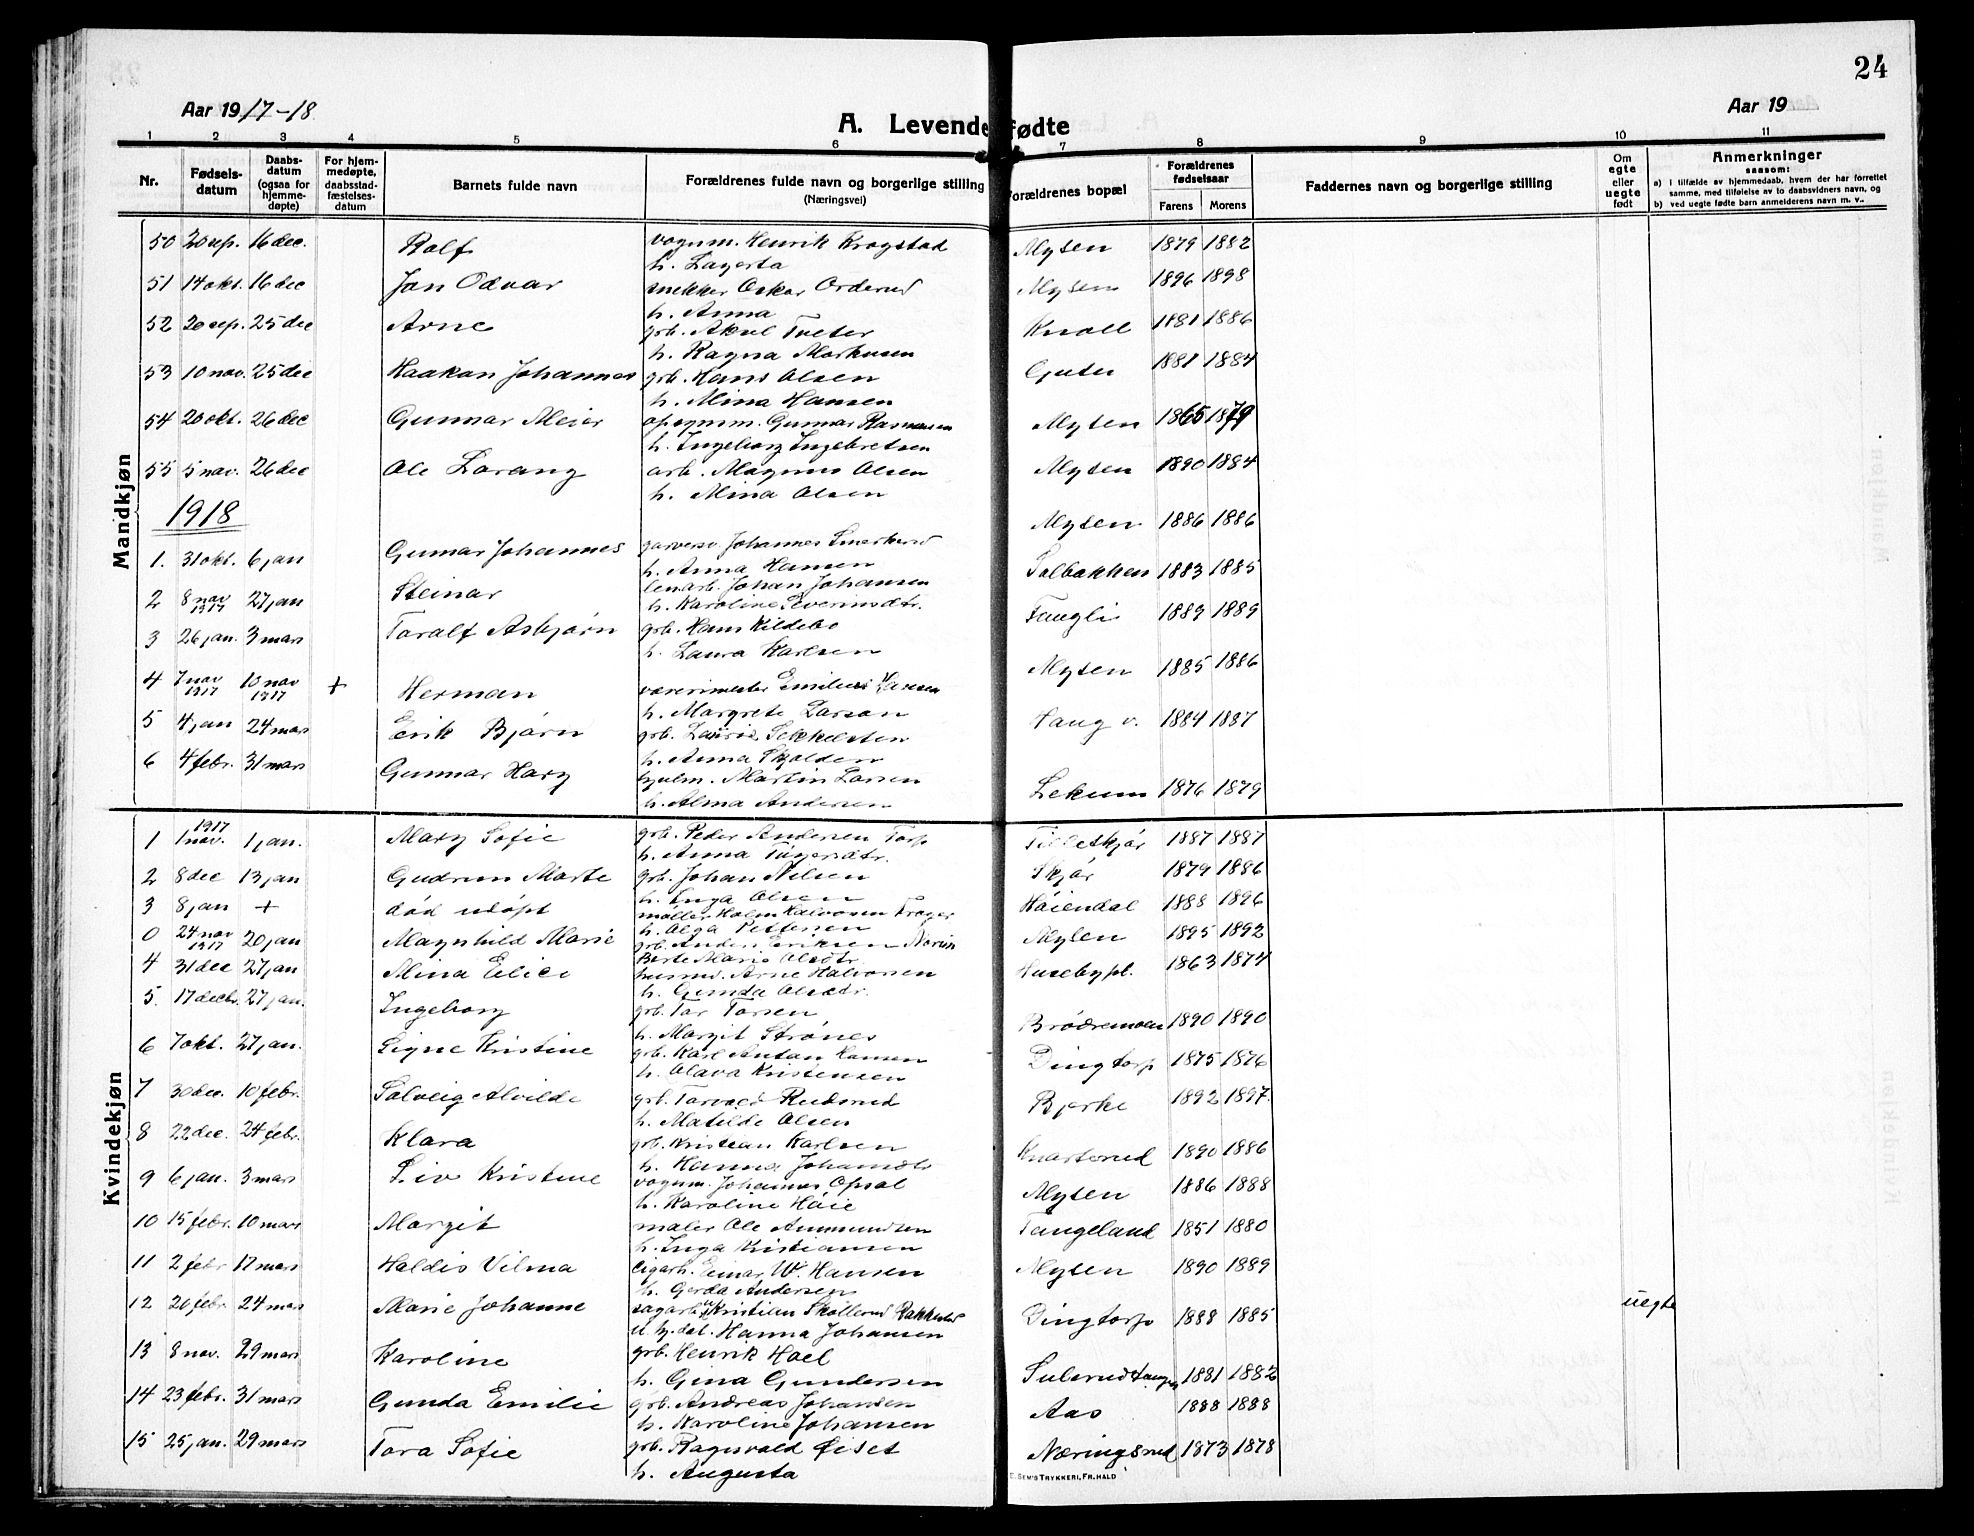 24
Aar 1917-18
Aar 19
A. Levendefødte
1 2 3 4 5 6 7 8 9 10 11
Nr.
Fødselsdatum
Daabsdatum (ogsaa for hjemmedøpte)
For hjemmedøpte, daabsstadfæstelsesdatum
Barnets fulde navn
Forældrenes fulde navn og borgerlige stilling (Næringsvei)
Forældrenes bopæl
Forældrenes fødselsaar
Farens Morens
Faddernes navn og borgerlige stilling
Om egte eller uegte født
Anmerkninger saasom:
a) i tilfælde av hjemmedaab, hvem der har forrettet samme, med tilføielse av to daabsvidners navn, og
b) ved uegte fødte barn anmelderens navn m. v..
Mandkjøn
50 20 sep. 16 dec. Rolf vognm. Henrik Krogstad Mysen 1879 1882
h. Lagerta
51 14 okt. 16 dec Jan Odvar snekker Oskar Orderud Mysen 1896 1898
h. Anna
52 20 sep. 25 dec Arne grb. Aksel Tveter Knoll 1881 1886
h. Ragna Markusen
53 10 nov. 25 dec Haakon Johannes grb. Hans Olsen 1881 1884
h. Mina Hansen
54 20 okt. 26 dec Gunnar Meier opsynsm. Gunnar Rasmussen Mysen 1865 1879
h. Ingeborg Ingebretsen
55 5 nov. 26 dec Ole Lorang arb. Magnus Olsen Mysen 1890 1884
h. Mina Olsen
1918
1. 31 okt. 6 jan Gunnar Johannes garversv. Johannes Mysen 1886 1886
h. Anna Hansen
2 8 nov 1917 27 jan Steinar Johan Johansen Solbakken 1883 1885
h. Karoline Severinsdtr.
3 26 jan. 3 mars Toralf Asbjørn grb. Hans Kildebo Fuglli 1889 1889
h. Laura Karlsen
4 7 nov 1917 10 nov 1917 + Herman værermester Emilius Hansen Mysen 1885 1886
h. Margrete Larson
5 4 jan 24 mars Erik Bjørn grb. Haug v. 1884 1887
h. Anna Skjolden
6 4 febr. 31 mars Gunnar Hary hjulm. Martin Larsen Lekum 1876 1879
h. Alma Andersen
Kvindekjøn
1 1917 1 nov. 1 jan. Mary Sofie grb. Peder Andersen Torp 1887 1887
h. Anna
2 8 dec 13 jan Gudrun Marte grb. Johan Nilsen Skjør 1879 1886
h. Inga Olsen
3 8 jan + død udøpt møller Holm Halvorsen Høiendal 1888 1896
h. Olga Pettersen
0 24 nov 1917 20 jan Magnhild Marie grb. Anders Eriksen Mysen 1895 1892
Berte Marie Olsdtr.
4 31 dec 27 jan Mina Elise husmd. Arne Halvorsen Husebypl. 1863 1874
h. Gunda Olsedtr.
5. 17 decbr. 27 jan. Ingeborg grb. Tor Torsen Brødremoen 1890 1890
h. Margit Strønes
6 7 okt. 27 jan. Signe Kristine grb. Karl Anton Hansen Dingtorp 1875 1876
h. Olava Kristensen
7 30 dec. 10 febr. Solveig Alvilde grb. Torvald Rudsrud Bjerke 1892 1897.
h. Matilde Olsen
8 22 dec. 24 febr. Klara grb. Kristian Karlsen Knarterud 1890 1886
h. Hanna
9 6 jan. 3 mars Liv Kristine vognm. Johannes Opsal Mysen 1886 1888
h. Karoline Høie
10 15 febr. 10 mars Margit maler Ole Ammundsen Tangeland 1851 1880
h. Inga Kristiansen
11 2 febr 17 mars Haldis Vilma cigarh. Einar W. Hansen Mysen 1890 1889
h. Gerda Andersen
12 20 febr. 24 mars Marie Johanne sagarb. Kristian Skøllerud Rakkestad Dingtorp 1888 1885 uegte
Hanna Johansen
13 8 nov. 29 mars Karoline grb. Henrik Hoel 1881 1882
h. Gina Gundersen
14 23 febr. 31 mars Gunda Emilie grb. Andreas Johansen Aas 1888 1888
h. Karoline Johansen
15 25 jan. 29 mars Tora Sofie grb. Ragnvald Øiset Næringsrud 1873 1878
h. Augusta
E. SEM'S TRYKKERI, FR.HALD